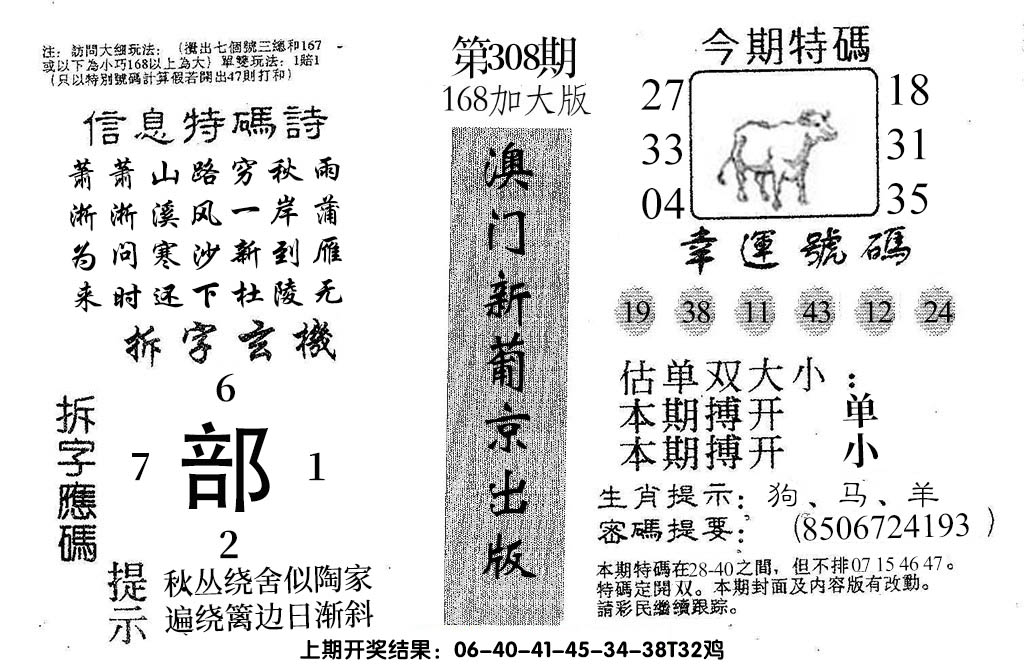 注：訪問大細玩法：（攪出七個號三總和167
或以下為小巧168以上為大）單雙玩法：1賠1
（只以特別號碼計算假若開出47則打和）
信息特碼詩
萧萧山路穷秋雨
淅淅溪风一岸蒲
为问寒沙新到雁
来时还下杜陵无
拆字玄機
拆字應碼
6
7 部 1
2
提示
秋丛绕舍似陶家
遍绕篱边日渐斜
第308期
168加大版
澳门新葡京出版
今期特碼
27 18
33 31
04 35
幸運號碼
19 38 11 43 12 24
估单双大小：
本期搏开 单
本期搏开 小
生肖提示：狗、马、羊
密碼提要：（8506724193）
本期特碼在28-40之間，但不排07 15 46 47。
特碼定開双。本期封面及内容版有改動。
請彩民繼續跟踪。
上期开奖结果：06-40-41-45-34-38T32鸡